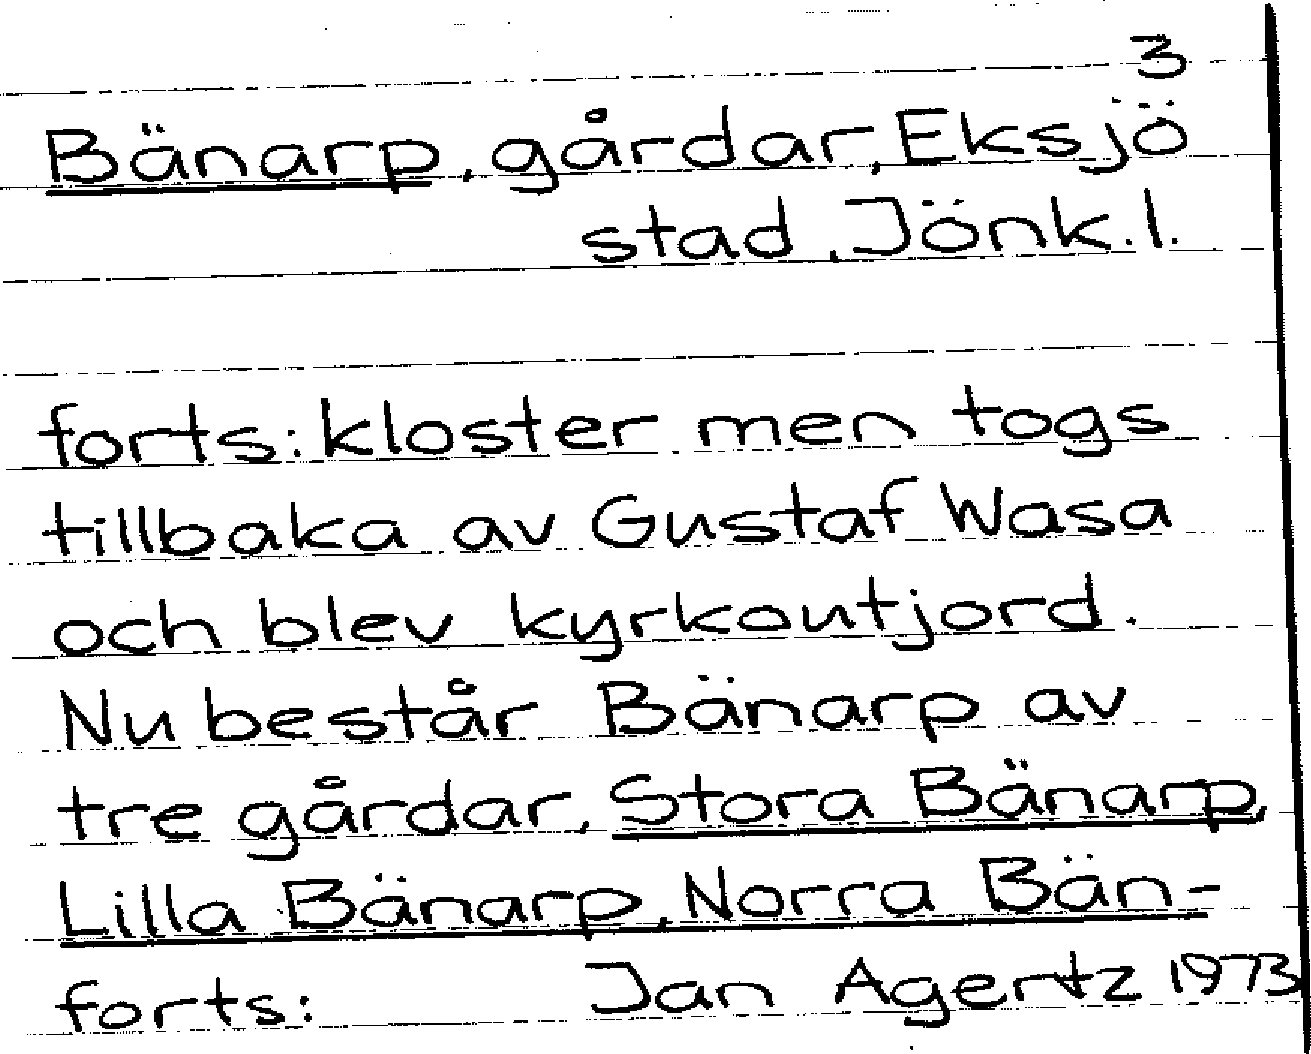 3
Bänarp, gårdar, Eksjö
stad, Jönk.l.
forts: kloster men togs
tillbaka av Gustaf Wasa
och blev kyrkoutjord.
Nu består Bänarp av
tre gårdar, Stora Bänarp,
Lilla Bänarp, Norra Bän-
forts: Jan Agertz 1973